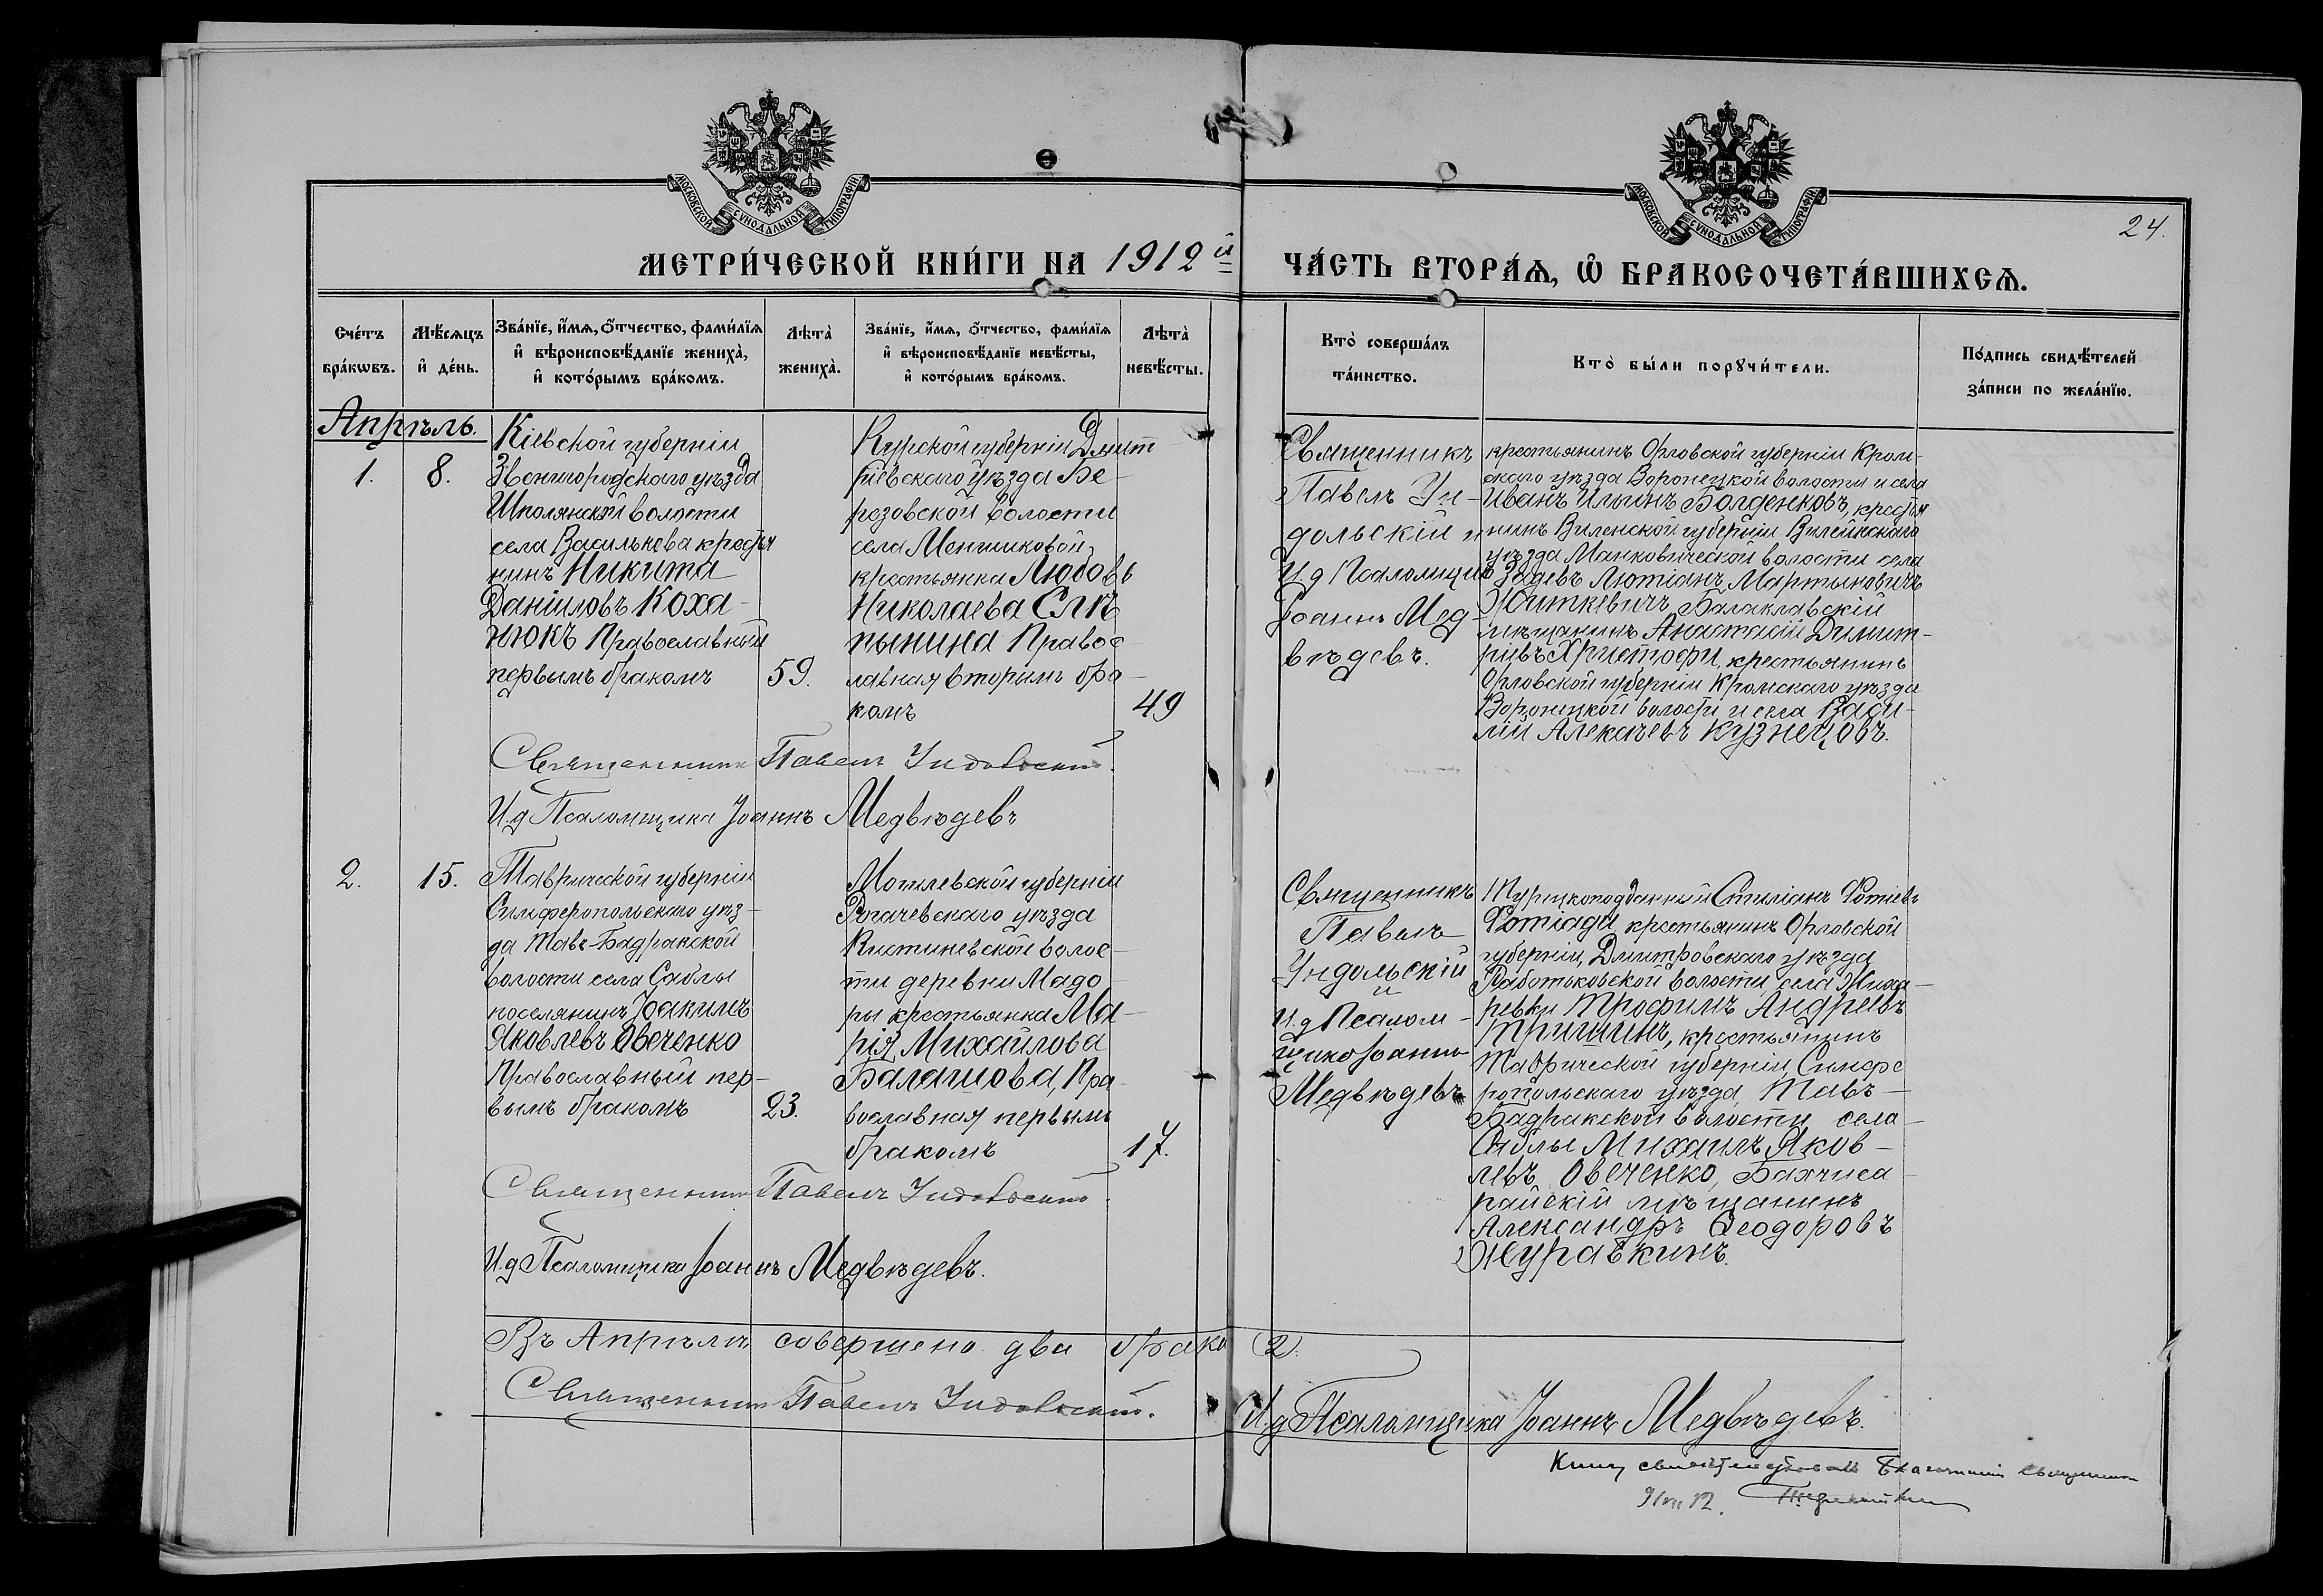 МОСКОВСКОЙ СѴНОДАЛЬНОЙ ТИПОГРАФІИ
МОСКОВСКОЙ СѴНОДАЛЬНОЙ ТИПОГРАФІИ
24.
МЕТРИ́ЧЕСКОЙ КНИ́ГИ НА 1912й
ЧА́СТЬ ВТОРА́Ѧ, Ѡ БРАКОСОЧЕТА́ВШИХСѦ.
Сче́тъ бра́кѡвъ.
Мѣ́сѧцъ и҆ де́нь.
Зва́нїе, и҆́мѧ, ѻ҆́тчество, фами́лїѧ и҆ вѣроисповѣ́данїе жениха̀, и҆ кото́рымъ бра́комъ.
Лѣта̀ жениха̀.
Зва́нїе, и҆́мѧ, ѻ҆́тчество, фами́лїѧ и҆ вѣроисповѣ́данїе невѣ́сты, и҆ кото́рымъ бра́комъ.
Лѣта̀ невѣ́сты.
Кто̀ соверша́лъ та́инство.
Кто̀ бы́ли порꙋчи́тели.
По́дпись свидѣ́телей за́писи по жела́нїю.
Апрѣль.
1.
8.
Кіевской губерніи
Звенигородскаго уѣзда
Шполянской волости
села Василькова крестья
нинъ Никита
Даніиловъ Коха-
нюкъ Православный
первымъ бракомъ
59.
Курской губерніи Дмит
ріевскаго уѣзда Бе-
резовской волости
села Меншиковой
крестьянка Любовь
Николаева
Правос
лавная вторымъ бра-
комъ
49
Священникъ
Павелъ Ун-
дольскій и
И.д Псаломщика
Іоаннъ Мед-
вѣдевъ.
крестьянинъ Орловской губерніи Кром-
скаго уѣзда Воронецкой волости и села
Иванъ Ильинъ Болденковъ, крестья
нинъ Виленской губерніи Вилейскаго
уѣзда Манковической волости села
Мартыновичъ
Юшкевичъ Балаклавскій
мѣщанинъ Анастасій Димит-
ріевъ Христофи, крестьянинъ
Орловской губерніи Кромскаго уѣзда
Воронецкой волости и села Васи-
лій Алексѣевъ Кузнецовъ.
Священникъ Павелъ Ундольскій.
И.д Псаломщика Іоаннъ Медвѣдевъ
2.
15.
Таврической губерніи
Симферопольскаго уѣз-
да Тавъ-Бадракской
волости села Саблы
поселянинъ Іоакимъ
Яковлевъ Овеченко
Православный пер-
вымъ бракомъ
23.
Могилевской губерніи
Рогачевскаго уѣзда
Кистиневской волос-
ти деревни Мадо-
ры крестьянка Ма-
рія Михайлова
Балашова, Пра-
вославная первымъ
бракомъ
17.
Священникъ
Павелъ
Ундольскій
и
И.д Псалом-
щика Іоаннъ
Медвѣдевъ
Турецкоподданный Стиліанъ Фотіевъ
Фотіади крестьянинъ Орловской
губерніи, Дмитровскаго уѣзда
Работьковской волости, села Жиха-
ревки Трофимъ Андреевъ
Тришинъ, крестьянинъ
Таврической губерніи, Симфе
ропольскаго уѣзда, Тавъ-
Бадракской волости села-
Саблы Михаилъ Яков-
левъ Овеченко, Бахчиса-
райскій мѣщанинъ
Александръ Ѳеодоровъ
Журавкинъ.
Священникъ Павелъ Ундольскій.
И.д Псаломщика Іоаннъ Медвѣдевъ.
Въ Апрѣлѣ совершено два брака 2.
Священникъ Павелъ Ундольскій.
И.д Псаломщика Іоаннъ Медвѣдевъ.